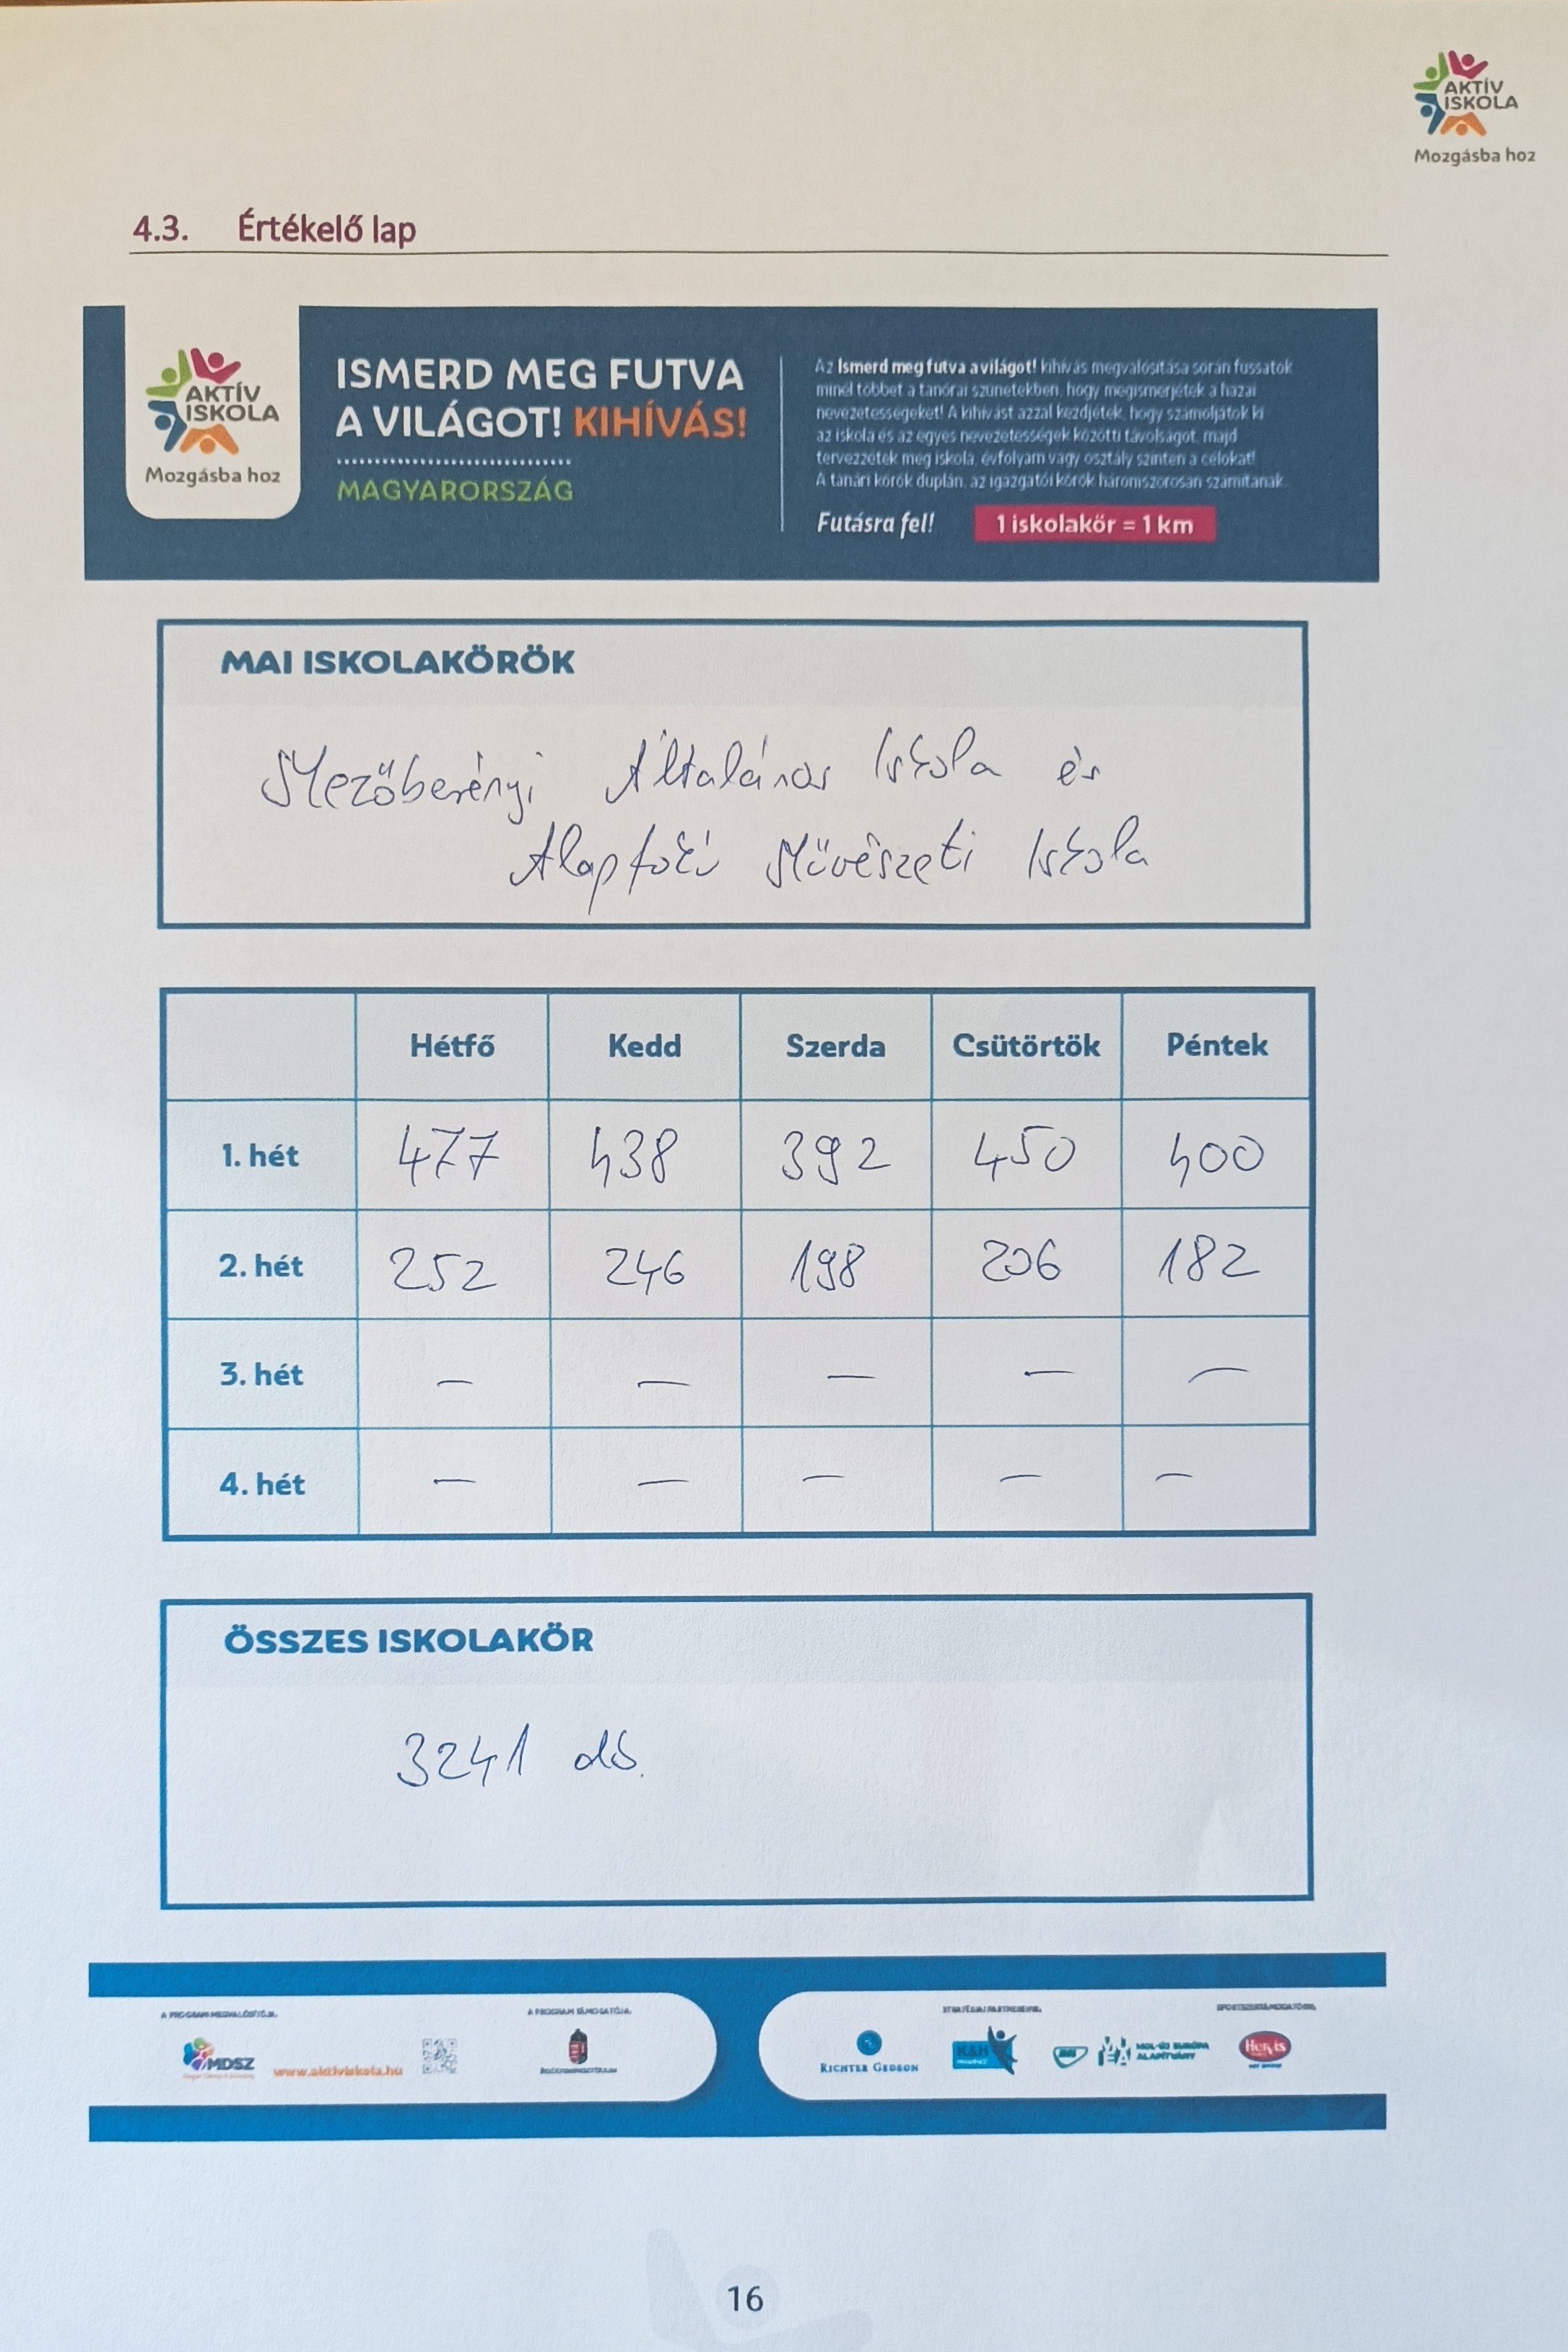 AKTÍV
ISKOLA
Mozgásba hoz
4.3. Értékelő lap
AKTÍV
ISKOLA
Mozgásba hoz
ISMERD MEG FUTVA
A VILÁGOT! KIHÍVÁS!
MAGYARORSZÁG
Az Ismerd meg futva a világot! kihívás megvalósítása során fussatok
minél többet a tanórai szünetekben, hogy megismerjétek a hazai
nevezetességeket! A kihívást azzal kezdjétek, hogy számoljátok ki
az iskola és az egyes nevezetességek közötti távolságot, majd
tervezzétek meg iskola, évfolyam vagy osztály szinten a célokat!
A tanári körök duplán, az igazgatói körök háromszorosan számítanak.
Futásra fel! 1 iskolakör = 1 km
MAI ISKOLAKÖRÖK
Mezőberényi Általános Iskola és
Alapfokú Művészeti Iskola
Hétfő Kedd Szerda Csütörtök Péntek
1. hét 477 438 392 450 400
2. hét 252 246 198 206 182
3. hét – – – – –
4. hét – – – – –
ÖSSZES ISKOLAKÖR
3241 db.
A PROGRAM MEGVALÓSÍTÓJA: A PROGRAM TÁMOGATÓJA:
MDSZ www.aktiviskola.hu
RICHTER GEDEON K&H MOL-ÚJ EURÓPA
ALAPÍTVÁNY
Hervis
16